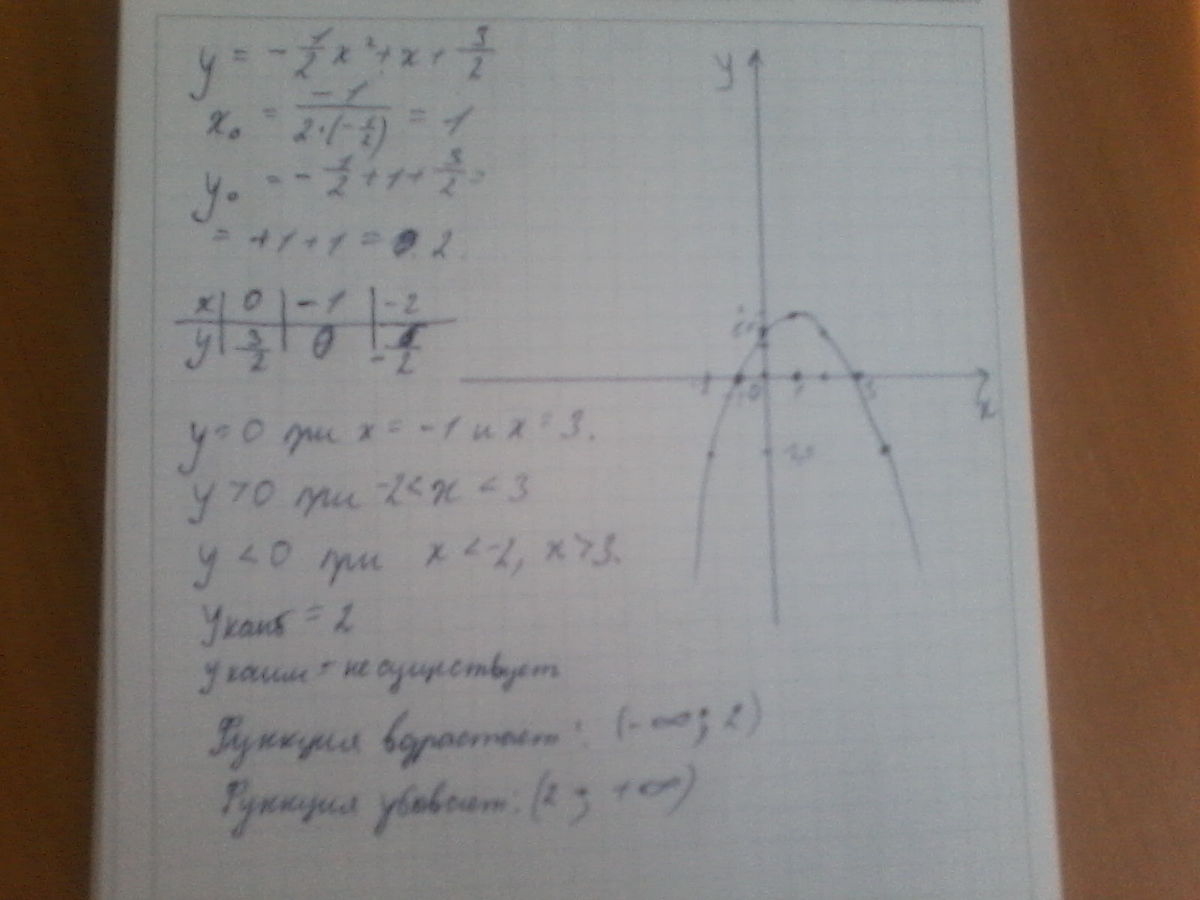 y = -1/2 x² + x + 3/2
x₀ = -1/(2·(-1/2)) = 1
y₀ = -1/2 + 1 + 3/2 =
= +1 + 1 = 2.
x | 0 | -1 | -2
y | 3/2 | 0 |
y = 0 при x = -1 и x = 3.
y > 0 при -2 < x < 3
y < 0 при x < -2, x > 3.
yнаиб = 2
yнаим - не существует
Функция возрастает: (-∞; 2)
Функция убывает: (2; +∞)
y
0 1 3
x